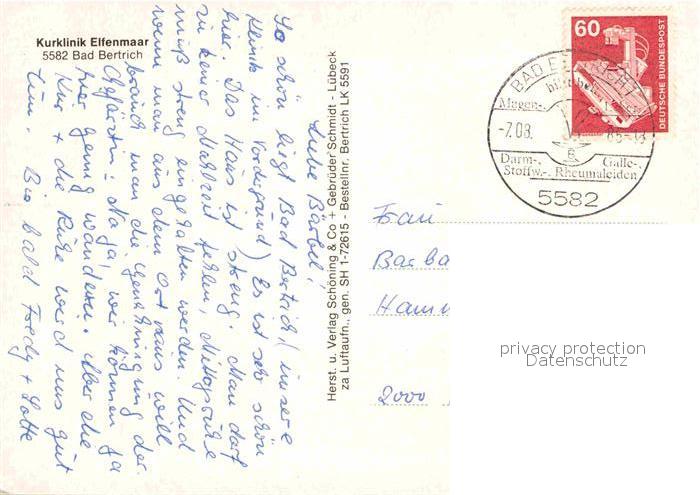 Kurklinik Elfenmaar
5582 Bad Bertrich
Liebe Bärbel!
So schön liegt Bad Bertrich (unsere
Klinik im Vordergrund) Es ist sehr schön
hier. Das Haus ist streng. Man darf
zu keiner Mahlzeit fehlen, Mittagsruhe
muß streng eingehalten werden. Und
wenn man aus dem Ort raus will
brauch man die Genehmigung der
Chefärztin. Na ja, wir können ja
hier genug wandern. Aber die
Kur + die Ruhe wird uns gut
tun. Bis bald Fredy + Lotte
Herst. u. Verlag Schöning & Co + Gebrüder Schmidt - Lübeck
za Luftaufn., gen. SH 1-72615 - Bestellnr. Bertrich LK 5591
60
DEUTSCHE BUNDESPOST
BAD BERTRICH
hilft bei
Magen-,
-7.08. 85-13
Darm-, Galle-,
Stoffw.-, Rheumaleiden
5582
Frau
Barba
Hamm
2000
privacy protection
Datenschutz